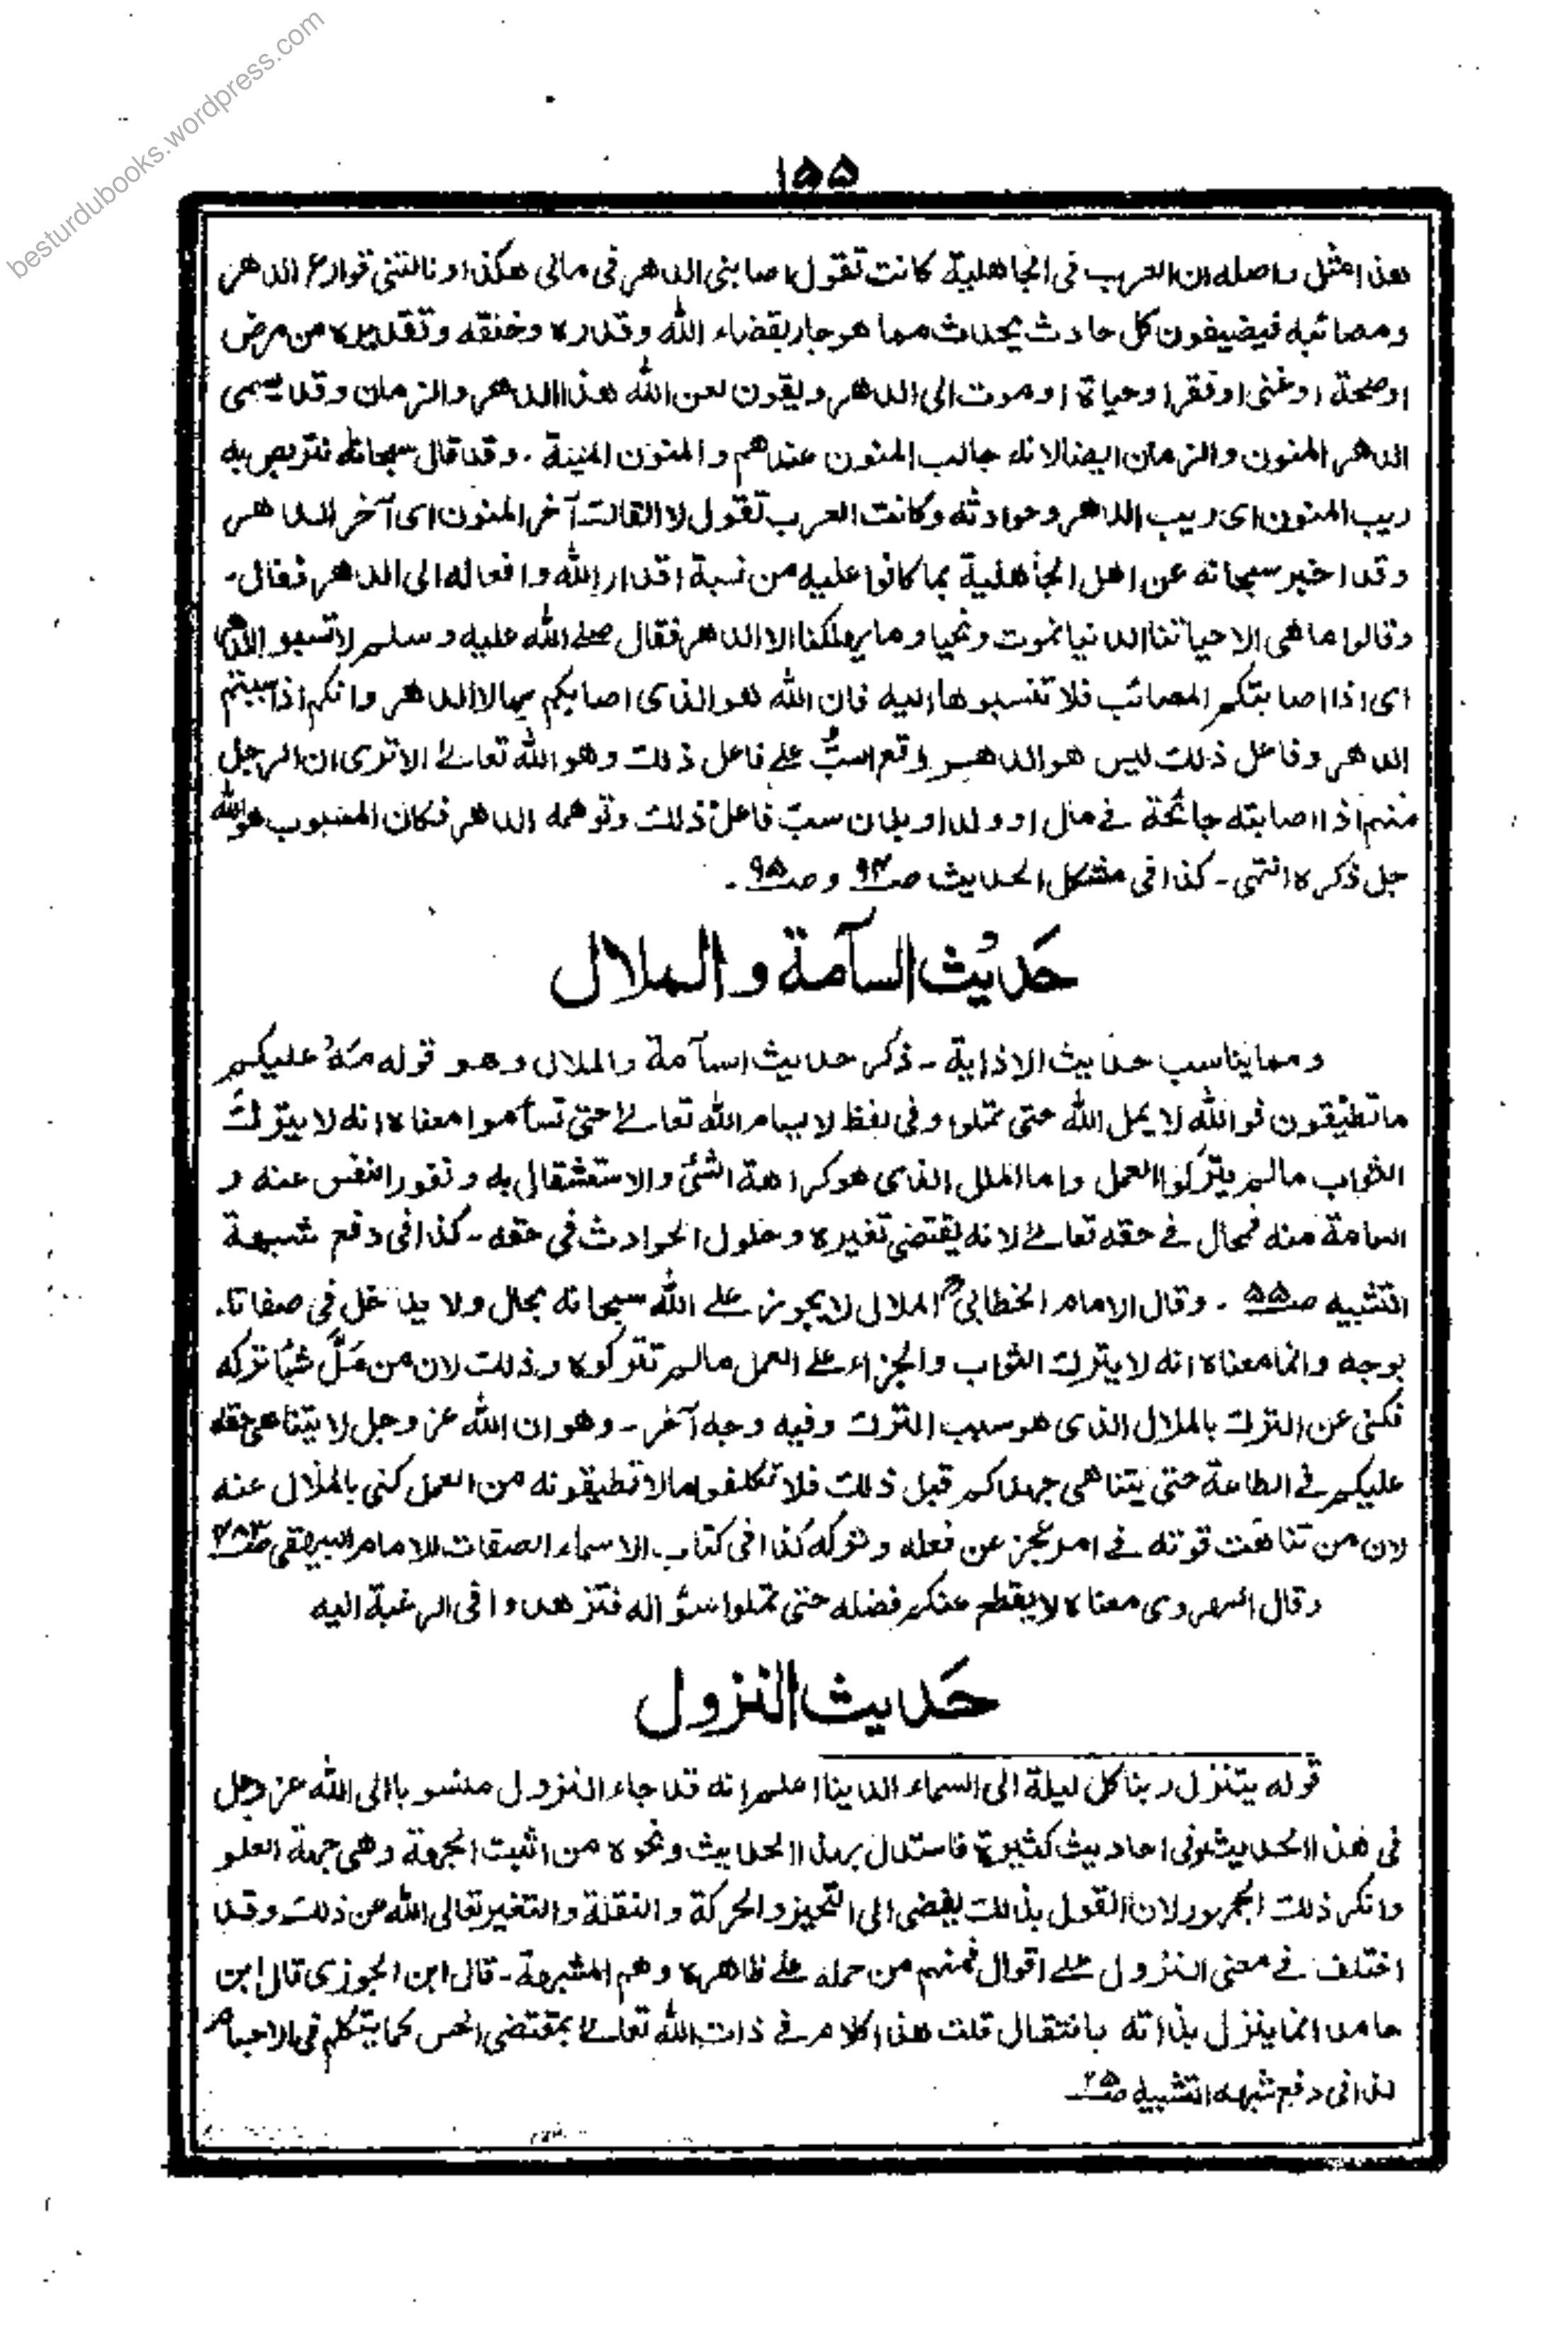 besturdubooks.wordpress.com
١٥٥
هذا مثل واصله ان العرب فى الجاهلية كانت تقول اصابنى الدهر فى مالى هكذا ونالتنى قوارع الدهر
ومصائبه فيضيفون كل حادث يحدث مما هو جار بقضاء الله وقدره وخلقه وتقديره من مرض
او صحة او غنى او فقر او حياة او موت الى الدهر ويقون لعن الله هذا الدهر والزمان وقد يسمى
الدهر المنون والزمان ايضا لانه جالب المنون عندهم والمنون المنية . وقد قال سبحانه نتربص به
ريب المنون اى ريب الدهر وحوادثه وكانت العرب تقول لا القالت آخر المنون اى آخر الدهر
وقد اخبر سبحانه عن اهل الجاهلية بما كانوا عليه من نسبة اقدار الله وافعاله الى الدهر فقال -
وقالوا ما هى الا حياتنا الدنيا نموت ونحيا وما يهلكنا الا الدهر فقال صلے الله عليه وسلم لا تسبوا الدهر
اى اذا اصابتكم المصائب فلا تنسبوها اليه فان الله هو الذى اصابكم بها لا الدهر وانكم اذا سببتم
الدهر وفاعل ذلك ليس هو الدهر وقع السبُّ علے فاعل ذلك وهو الله تعالےٰ الا ترى ان الرجل
منهم اذا اصابته جائحة فے مال او ولد او بدن سبّ فاعل ذلك وتوهمه الدهر فكان المسبوب هو الله
جل ذكره انتهى - كذا فى مشكل الحديث صـ٩٤ وصـ٩٥ .
حَديُث السآمة والملال
ومما يناسب حديث الاذاية - ذكر حديث اسآمة والملال وهو قوله مَهْ عليكم
ما تطيقون فوالله لا يمل الله حتى تملوا وفى لفظ لا يسام الله تعالےٰ حتى تسآموا معناه انه لا يترك
الثواب مالم يتركوا العمل واما الملل الذى هو كراهة الشئ والاستثقال به ونفور النفس عنه و
السامة منه فمحال فے حقه تعالےٰ لانه يقتضى تغيره وحلول الحوادث فى حقه - كذا فى دفع شبهة
التشبيه صـ٥٥ . وقال الامام الخطابى الملال لا يجوز علے الله سبحانه بحال ولا يدخل فى صفاته
بوجه وانما معناه انه لا يترك الثواب والجزاء علے العمل مالم تتركوه وذلك لان من مَلَّ شيًا تركه
فكنى عن الترك بالملال الذى هو سبب الترك وفيه وجه آخر - وهو ان الله عز وجل لا يتناهى حقه
عليكم فے الطاعة حتى يتناهى جهدكم قبل ذلك فلا تكلفوا مالا تطيقونه من العمل كنى بالملال عنه
لان من تناهت قوته فے امر عجز عن فعله وتركه كذا فى كتاب الاسماء الصفات للامام البيهقى صـ٢٨٣
وقال الهروى معناه لا يقطع عنكم فضله حتى تملوا سؤاله فتزهدوا فى الرغبة اليه
حَديث النزول
قوله يتنزل ربنا كل ليلة الى السماء الدينا اعلم انه قد جاء النزول منسوبا الى الله عز وجل
فى هذا الحديث وفى احاديث كثيرة فاستدل بهذا الحديث ونحوه من اثبت الجهة وهى جهة العلو
وانكر ذلك الجمهور لان القول بذلك يفضى الى التحيز والحركة والنقلة والتغير تعالى الله عن ذلك وقد
اختلف فے معنى النزول علے اقوال فمنهم من حمله علے ظاهره وهم المشبهة - قال ابن الجوزى قال ابن
حامد انما ينزل بذاته بانتقال قلت هذا كلام فے ذات الله تعالےٰ بمقتضى الحس كما يتكلم فى الاجسام
كذا فى دفع شبهه التشبيه